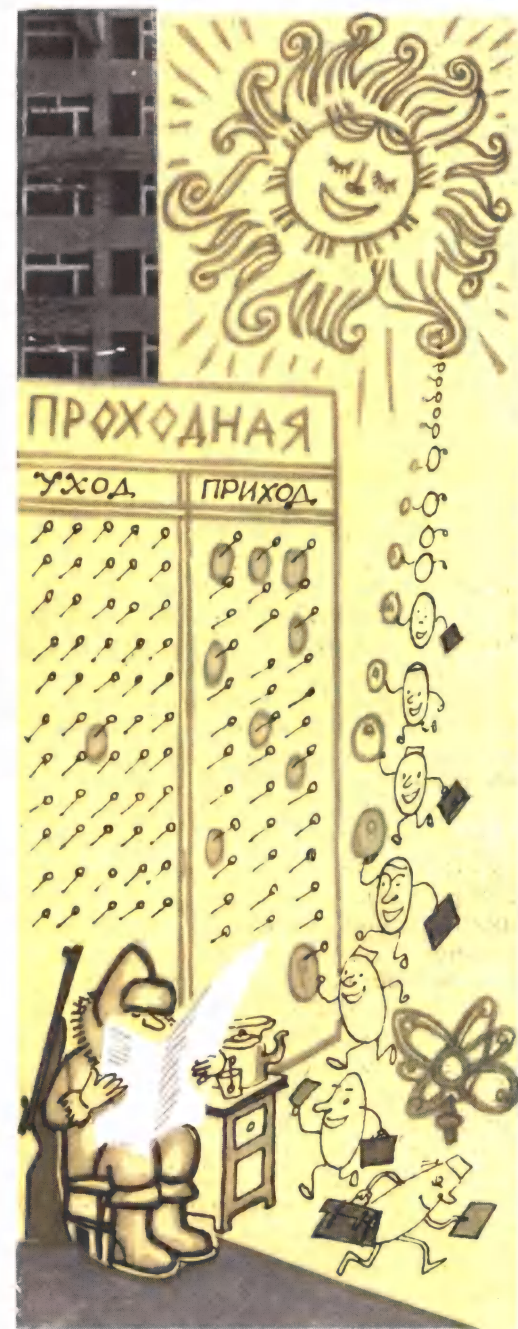 ПРОХОДНАЯ
УХОД
ПРИХОД